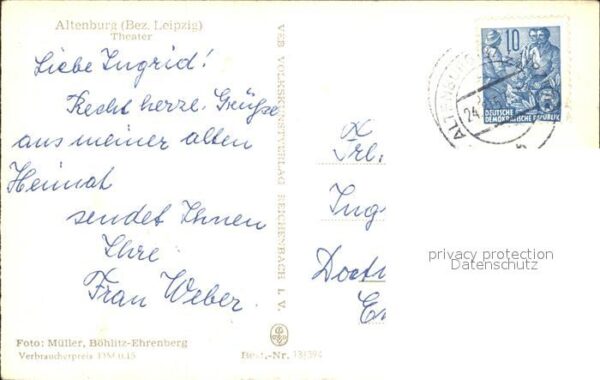 Altenburg (Bez. Leipzig)
Theater
Liebe Ingrid!
Recht herzl. Grüße
aus meiner alten
Heimat
sendet Ihnen
Ihre
Frau Weber.
Foto: Müller, Böhlitz-Ehrenberg
Verbraucherpreis DM 0.15
Best.-Nr. 131394
VEB VOLKSKUNSTVERLAG REICHENBACH I. V.
10
DEUTSCHE
DEMOKRATISCHE REPUBLIK
ALTENBURG
24.
Frl.
Ing
privacy protection
Datenschutz